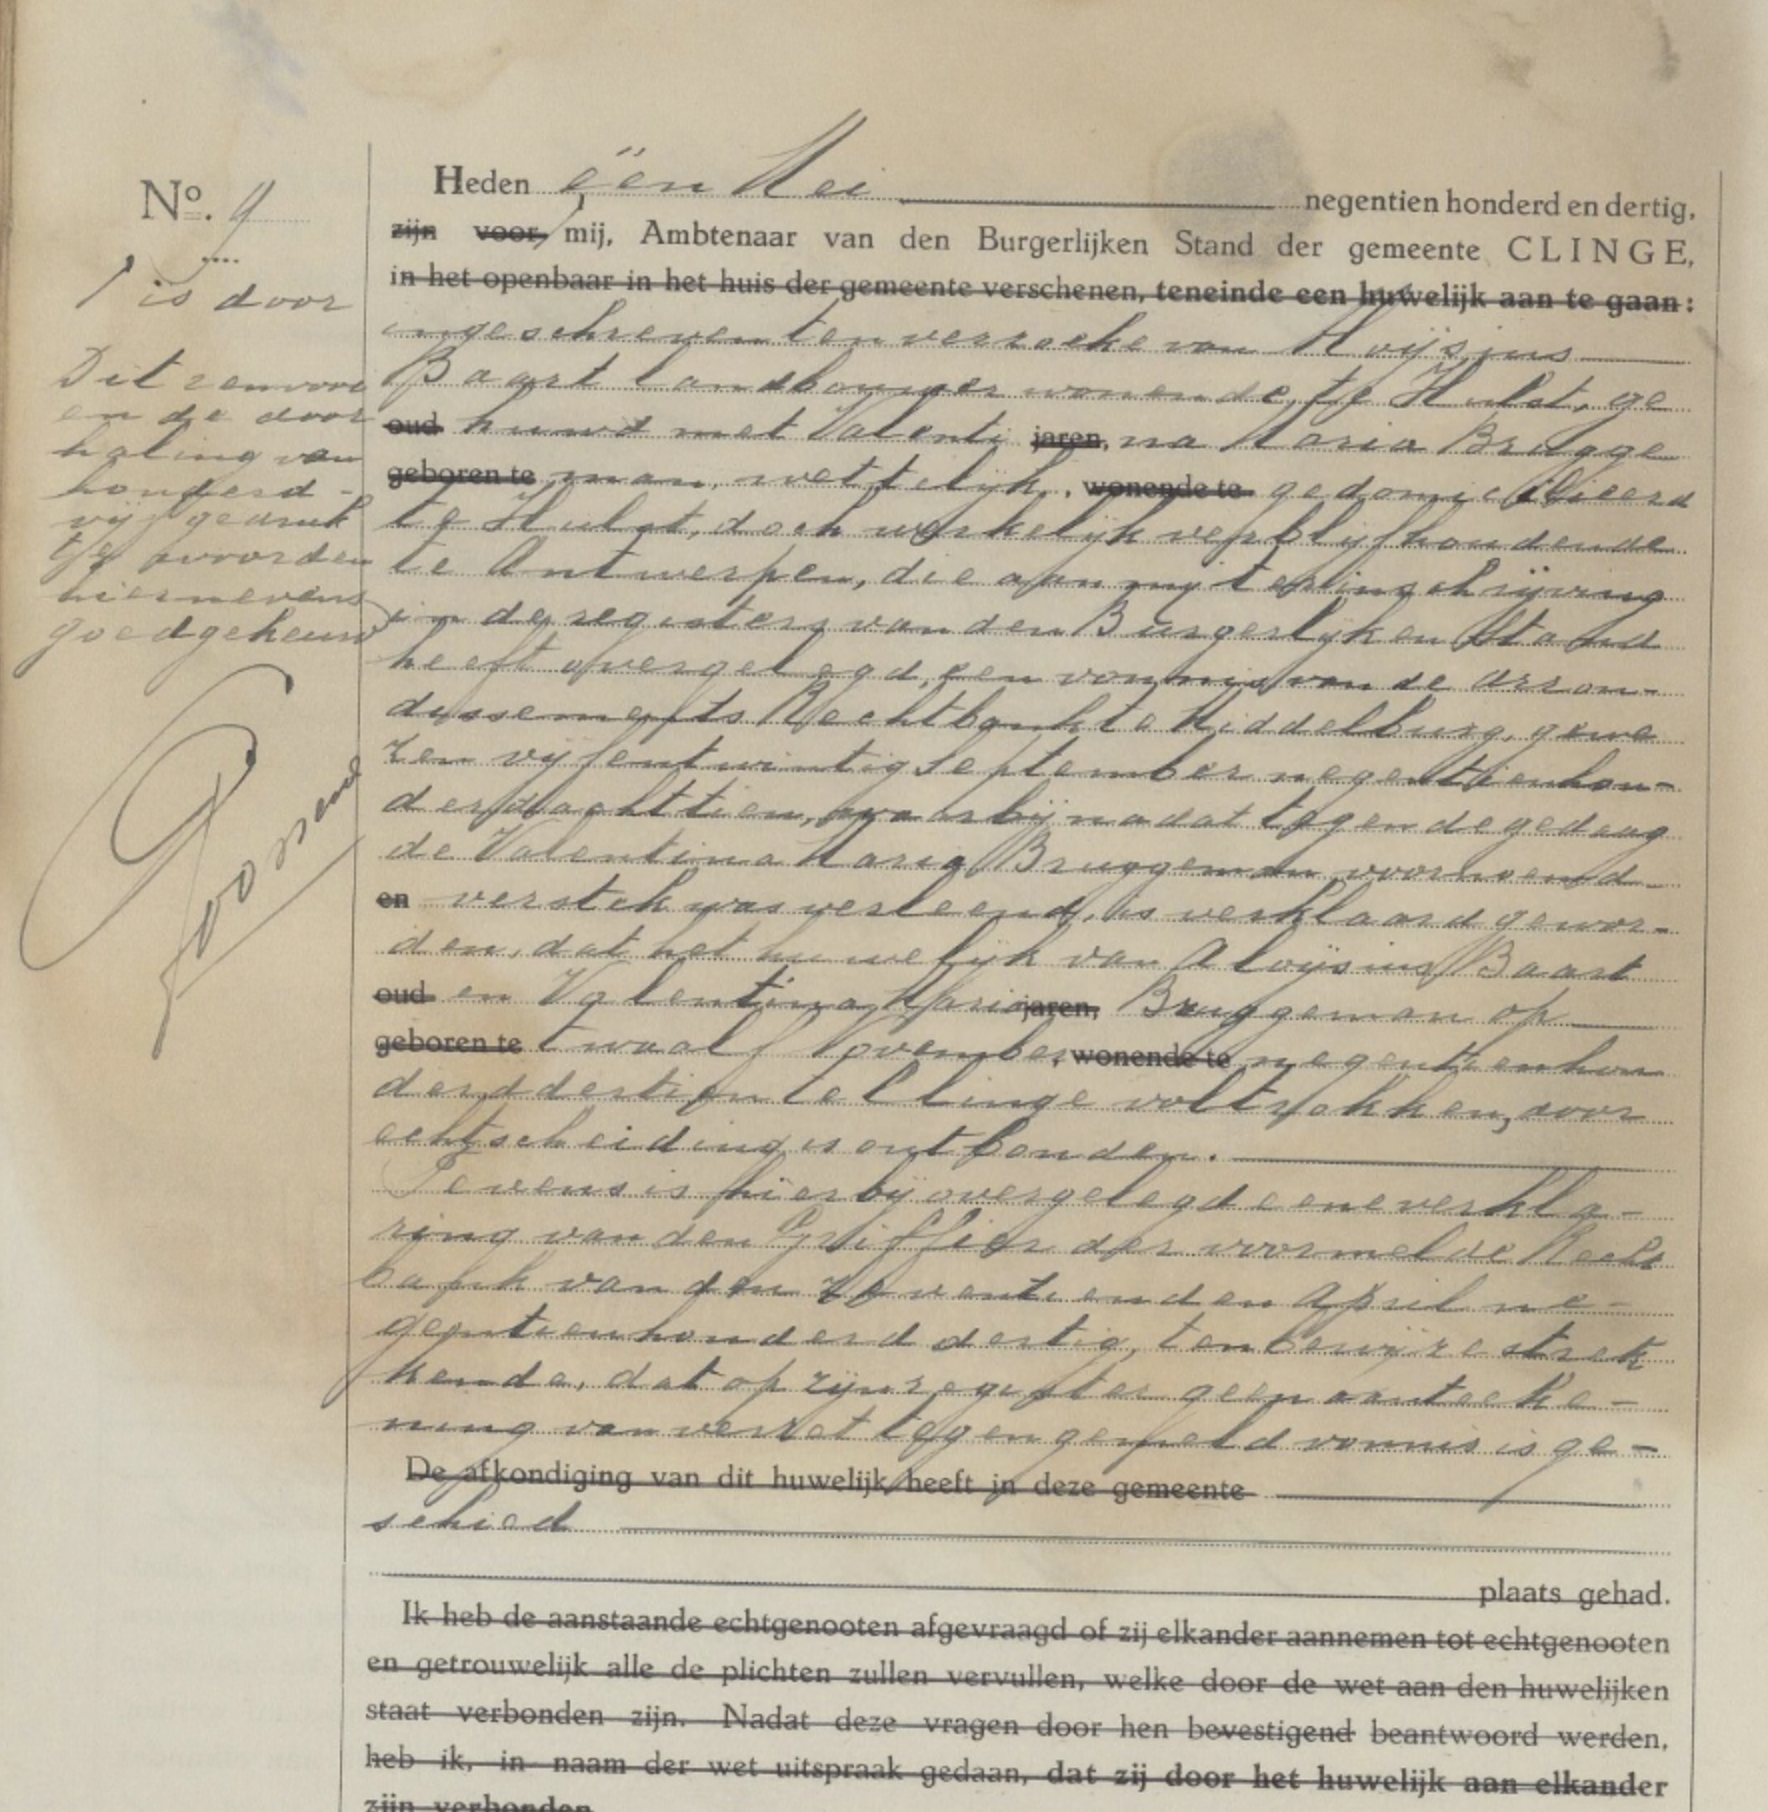 No. 9
1 is door
Dit renvooi
en de door
haling van
honderd-
vijf gedruk
te woorden
hiernevens
goedgekeurd
Heden één Mei negentien honderd en dertig,
zijn voor mij, Ambtenaar van den Burgerlijken Stand der gemeente CLINGE,
in het openbaar in het huis der gemeente verschenen, teneinde een huwelijk aan te gaan:
ingeschreven ten verzoeke van Aloÿsius
Baart landbouwer wonende te Hulst, ge
oud huwd met Valenti jaren, na Maria Brugge
geboren te man, wettelijk, wonende te gedomicilieerd
te Hulst, doch werkelijk verblijfhoudende
te Antwerpen, die aan mij ter inschrijving
in de registers van den Burgerlijken Stand
heeft overgelegd, een vonnis van de arron-
dissements Rechtbank te Middelburg, gewe
zen vijfentwintig September negentienhon-
derdachttien, waarbij nadat tegen de gedaag
de Valentina Maria Bruggeman voornoemd
en verstek was verleend, is verklaard gewor-
den, dat het huwelijk van Aloÿsius Baart
oud en Valentina Maria jaren, Bruggeman op
geboren te twaalf November, wonende te negentienhon
derddertien te Clinge voltrokken, door
echtscheiding is ontbonden.
Tevens is hierbij overgelegd eene verkla-
ring van den Griffier der voormelde Recht
bank van den zeventienden April ne-
gentienhonderd dertig, ten bewijze strek
kende, dat op zijn register geen aanteeke-
ning van verzet tegen gemeld vonnis is ge-
De afkondiging van dit huwelijk heeft in deze gemeente
schied
plaats gehad.
Ik heb de aanstaande echtgenooten afgevraagd of zij elkander aannemen tot echtgenooten
en getrouwelijk alle de plichten zullen vervullen, welke door de wet aan den huwelijken
staat verbonden zijn. Nadat deze vragen door hen bevestigend beantwoord werden,
heb ik, in naam der wet uitspraak gedaan, dat zij door het huwelijk aan elkander
zijn verbonden